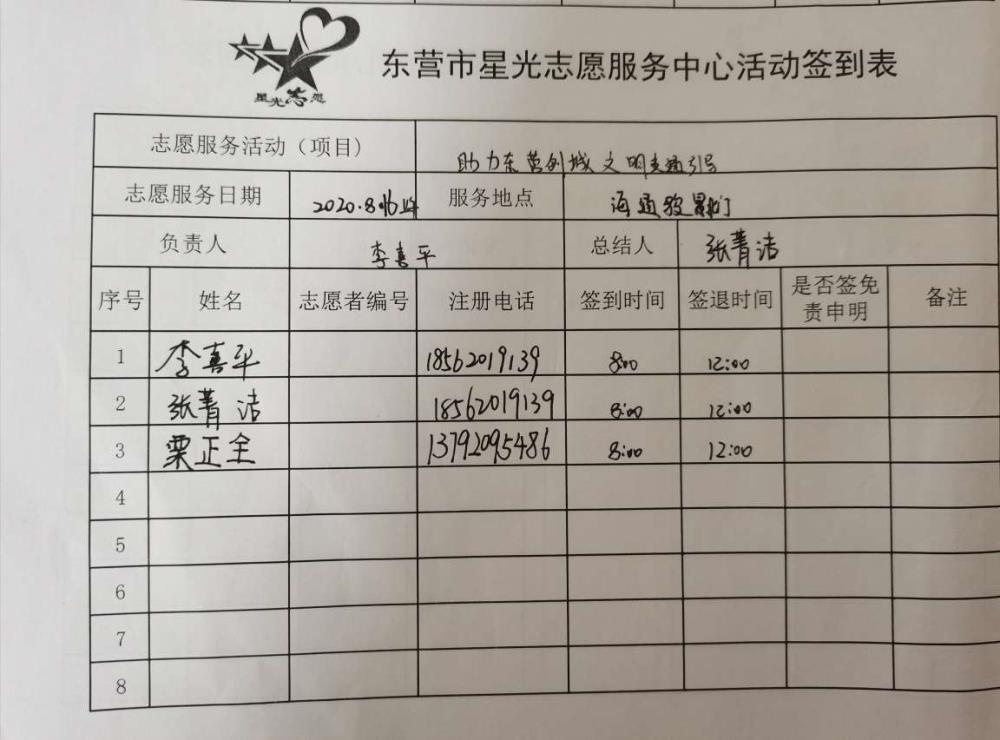 星光志愿
东营市星光志愿服务中心活动签到表
志愿服务活动（项目） 助力东营创城文明交通引导
志愿服务日期 2020.8 服务地点 海通
负责人 李喜平 总结人 张菁洁
序号 姓名 志愿者编号 注册电话 签到时间 签退时间 是否签免责申明 备注
1 李喜平 18562019139 8:00 12:00
2 张菁洁 18562019139 8:00 12:00
3 栗正全 13792095486 8:00 12:00
4
5
6
7
8